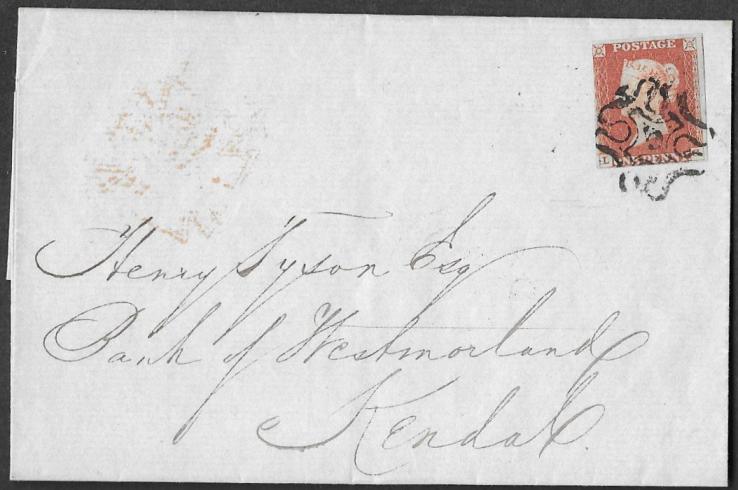 POSTAGE
L
Henry Tyson Esq
Bank of Westmorland
Kendal.